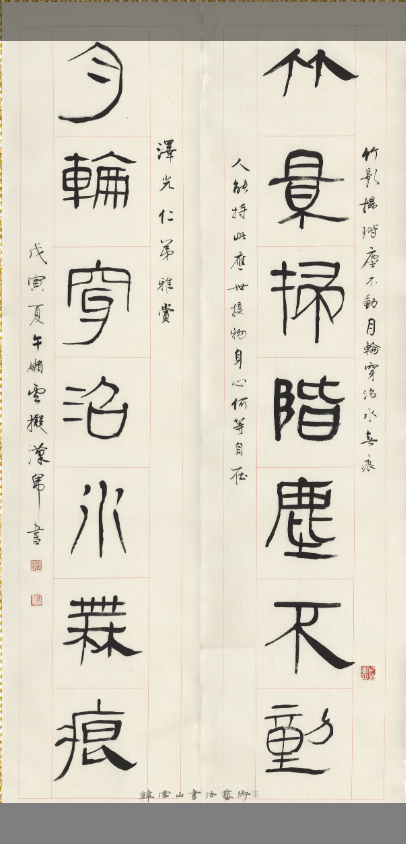 竹影掃階塵不動月輪穿沼水無痕
竹景掃階塵不動
人能持此應世接物身心何等自在
澤光仁弟雅賞
月輪穿沼水無痕
戊寅夏午嶺雲擬漢帛書